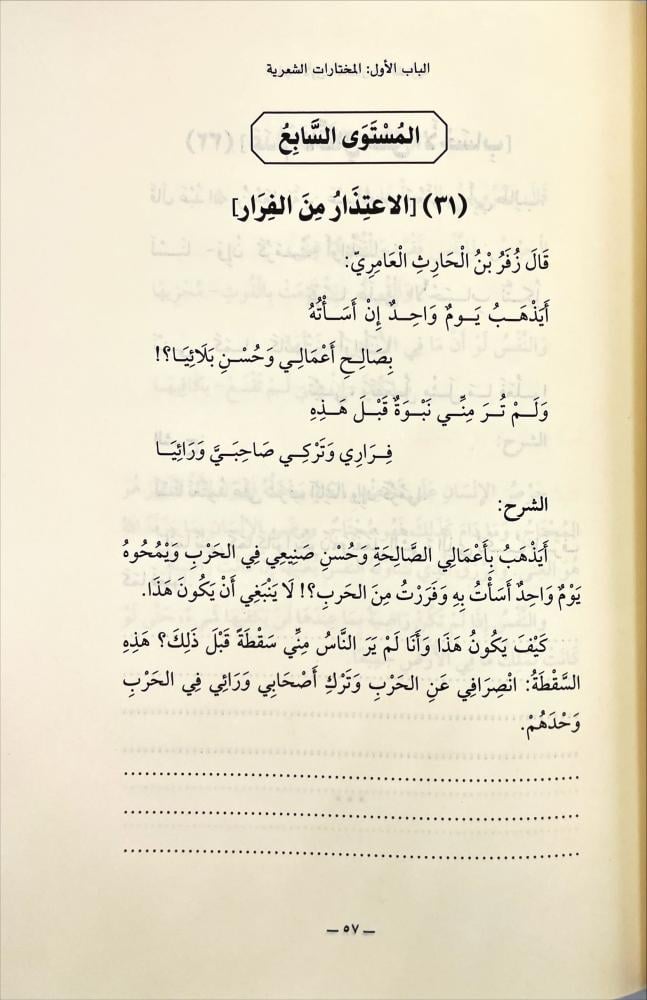 الباب الأول: المختارات الشعرية
المُسْتَوَى السَّابِعُ
(٣١) [الاعتِذَارُ مِنَ الفِرَارِ]
قَالَ زُفَرُ بْنُ الْحَارِثِ الْعَامِرِيّ:
أَيَذْهَبُ يَومٌ وَاحِدٌ إِنْ أَسَأْتُهُ
بِصَالِحِ أَعْمَالِي وَحُسْنِ بَلَائِيَا؟!
وَلَمْ تُرَ مِنِّي نَبْوَةٌ قَبْلَ هَذِهِ
فِرَارِي وَتَرْكِي صَاحِبَيَّ وَرَائِيَا
الشرح:
أَيَذْهَبُ بِأَعْمَالِي الصَّالِحَةِ وَحُسْنِ صَنِيعِي فِي الحَرْبِ وَيَمْحُوهُ
يَوْمٌ وَاحِدٌ أَسَأْتُ بِهِ وَفَرَرْتُ مِنَ الحَربِ؟! لَا يَنْبَغِي أَنْ يَكُونَ هَذَا.
كَيْفَ يَكُونُ هَذَا وَأَنَا لَمْ يَرَ النَّاسُ مِنِّي سَقْطَةً قَبْلَ ذَلِكَ؟ هَذِهِ
السَّقْطَةُ: انْصِرَافِي عَنِ الحَرْبِ وَتَرْكِ أَصْحَابِي وَرَائِي فِي الحَرْبِ
وَحْدَهُمْ.
– ٥٧ –